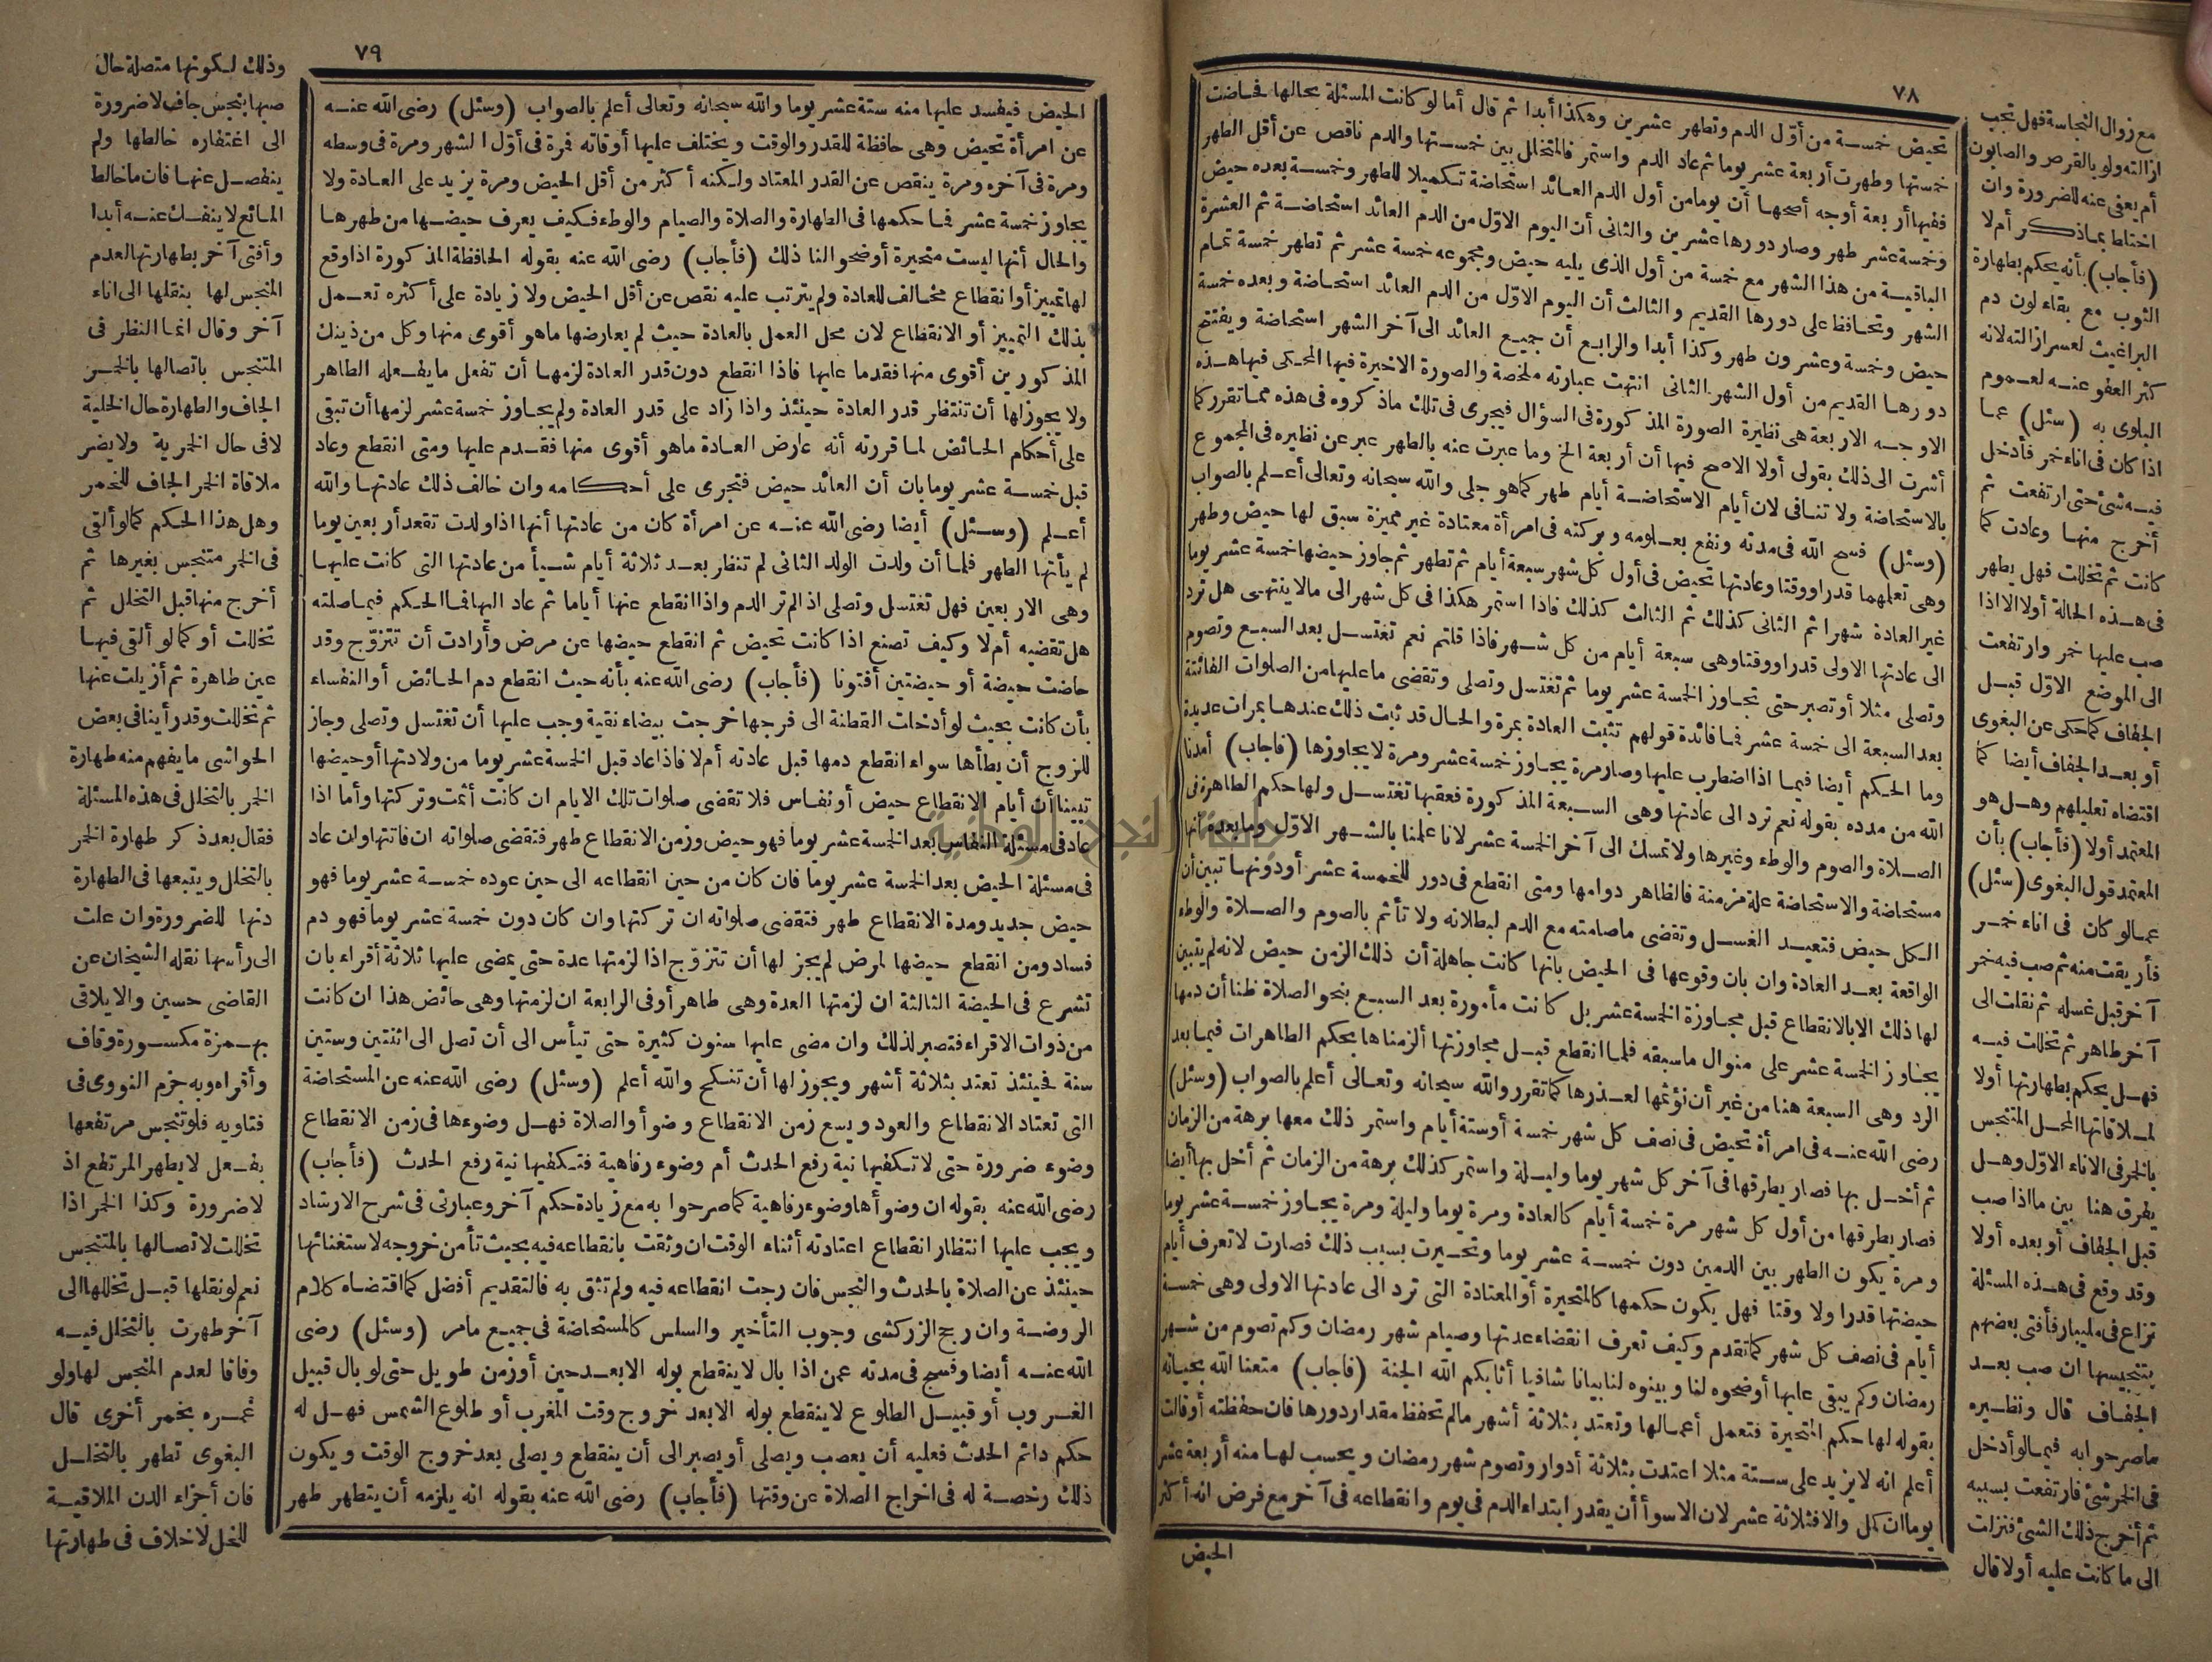 ٧٨
تحيض خمسة من أول الدم وتطهر عشرين وهكذا أبدا ثم قال أما لو كانت المسئلة بحالها فحاضت
خمستها وطهرت أربعة عشر يوما ثم عاد الدم واستمر فالمتخلل بين خمستها والدم ناقص عن أقل الطهر
ففيها أربعة أوجه أصحها أن يوما من أول الدم العائد استحاضة تكميلا للطهر وخمسة بعده حيض
وخمسة عشر طهر وصار دورها عشرين والثانى أن اليوم الاول من الدم العائد استحاضة ثم العشرة
الباقية من هذا الشهر مع خمسة من أول الذى يليه حيض ومجموعه خمسة عشر ثم تطهر خمسة تمام
الشهر وتحافظ على دورها القديم والثالث أن اليوم الاول من الدم العائد استحاضة وبعده خمسة
حيض وخمسة وعشرون طهر وكذا أبدا والرابع أن جميع العائد الى آخر الشهر استحاضة ويفتتح
دورها القديم من أول الشهر الثانى انتهت عبارته ملخصة والصورة الاخيرة فيها المحكى فيها هذه
الاوجه الاربعة هى نظيرة الصورة المذكورة فى السؤال فيجرى فى تلك ماذكروه فى هذه مما تقرر كما
أشرت الى ذلك بقولى أولا الاصح فيها أن أربعة الخ وما عبرت عنه بالطهر عبر عن نظيره فى المجموع
بالاستحاضة ولا تنافى لان أيام الاستحاضة أيام طهر كما هو جلى والله سبحانه وتعالى أعلم بالصواب
(وسئل) فسح الله فى مدته ونفع بعلومه وبركته فى امرأة معتادة غير مميزة سبق لها حيض وطهر
وهى تعلمهما قدرا ووقتا وعادتها تحيض فى أول كل شهر سبعة أيام ثم تطهر ثم جاوز حيضها خمسة عشر يوما
غير العادة شهرا ثم الثانى كذلك ثم الثالث كذلك فاذا استمر هكذا فى كل شهر الى مالا ينتهى هل ترد
الى عادتها الاولى قدرا ووقتا وهى سبعة أيام من كل شهر فاذا قلتم نعم تغتسل بعد السبع وتصوم
وتصلى مثلا أو تصبر حتى تجاوز الخمسة عشر يوما ثم تغتسل وتصلى وتقضى ما عليها من الصلوات الفائتة
بعد السبعة الى خمسة عشر فما فائدة قولهم تثبت العادة بمرة والحال قد ثبت ذلك عندها بمرات عديدة
وما الحكم أيضا فيما اذا اضطرب عليها وصار مرة يجاوز خمسة عشر ومرة لا يجاوزها (فأجاب) أمدنا
الله من مدده بقوله نعم ترد الى عادتها وهى السبعة المذكورة فعقبها تغتسل ولها حكم الطاهرة فى
الصلاة والصوم والوطء وغيرها ولا تمسك الى آخر الخمسة عشر لانا علمنا بالشهر الاول وما بعده أنها
مستحاضة والاستحاضة علة مزمنة فالظاهر دوامها ومتى انقطع فى دور للخمسة عشر أودونها تبين أن
الكل حيض فتعيد الغسل وتقضى ماصامته مع الدم لبطلانه ولا تأثم بالصوم والصلاة والوطء
الواقعة بعد العادة وان بان وقوعها فى الحيض بانها كانت جاهلة أن ذلك الزمن حيض لانه لم يتبين
لها ذلك الا بالانقطاع قبل مجاوزة الخمسة عشر بل كانت مأمورة بعد السبع بنحو الصلاة ظنا أن دمها
يجاوز الخمسة عشر على منوال ماسبقه فلما انقطع قبل مجاوزتها ألزمناها بحكم الطاهرات فيما بعد
الرد وهى السبعة هنا من غير أن نؤثمها لعذرها كما تقرر والله سبحانه وتعالى أعلم بالصواب (وسئل)
رضى الله عنه فى امرأة تحيض فى نصف كل شهر خمسة أوستة أيام واستمر ذلك معها برهة من الزمان
ثم أخل بها فصار يطرقها فى آخر كل شهر يوما وليلة واستمر كذلك برهة من الزمان ثم أخل بها أيضا
فصار يطرقها من أول كل شهر مرة خمسة أيام كالعادة ومرة يوما وليلة ومرة يجاوز خمسة عشر يوما
ومرة يكون الطهر بين الدمين دون خمسة عشر يوما وتحيرت بسبب ذلك فصارت لا تعرف أيام
حيضتها قدرا ولا وقتا فهل يكون حكمها كالمتحيرة أو المعتادة التى ترد الى عادتها الاولى وهى خمسة
أيام فى نصف كل شهر كما تقدم وكيف تعرف انقضاء عدتها وصيام شهر رمضان وكم تصوم من شهر
رمضان وكم يبقى عليها أوضحوه لنا وبينوه لنا بيانا شافيا أثابكم الله الجنة (فأجاب) متعنا الله بحياته
بقوله لها حكم المتحيرة فتعمل أعمالها وتعتد بثلاثة أشهر مالم تحفظ مقدار دورها فان حفظته أو قالت
أعلم انه لا يزيد على ستة مثلا اعتدت بثلاثة أدوار وتصوم شهر رمضان ويحسب لها منه أربعة عشر
يوما ان كمل والا فثلاثة عشر لان الاسوأ أن يقدر ابتداء الدم فى يوم وانقطاعه فى آخر مع فرض انه أكثر
الحيض
مع زوال النجاسة فهل تجب
ازالته ولو بالقرص والصابون
أم يعفى عنه للضرورة وان
اختلط بماذكر أم لا
(فأجاب) بأنه يحكم بطهارة
الثوب مع بقاء لون دم
البراغيث لعسر ازالته لانه
كثر العفو عنه لعموم
البلوى به (سئل) عما
اذا كان فى اناء خمر فأدخل
فيه شئ حتى ارتفعت ثم
أخرج منها وعادت كما
كانت ثم تخللت فهل يطهر
فى هذه الحالة أولا الا اذا
صب عليها خمر وارتفعت
الى الموضع الاول قبل
الجفاف كما حكى عن البغوى
أو بعد الجفاف أيضا كما
اقتضاه تعليلهم وهل هو
المعتمد أولا (فأجاب) بأن
المعتمد قول البغوى (سئل)
عمالو كان فى اناء خمر
فأريقت منه ثم صب فيه خمر
آخر قبل غسله ثم نقلت الى
آخر طاهر ثم تخللت فيه
فهل يحكم بطهارتها أولا
لملاقاتها المحل المتنجس
بالخمر فى الاناء الاول وهل
يفرق هنا بين مااذا صب
قبل الجفاف أو بعده أولا
وقد وقع فى هذه المسئلة
نزاع فى مليبار فأفتى بعضهم
بتنجيسها ان صب بعد
الجفاف قال ونظيره
ماصرحوابه فيمالو أدخل
فى الخمر شئ فارتفعت بسببه
ثم أخرج ذلك الشئ فنزلت
الى ما كانت عليه أولا قال
٧٩
الحيض فيفسد عليها منه ستة عشر يوما والله سبحانه وتعالى أعلم بالصواب (وسئل) رضى الله عنه
عن امرأة تحيض وهى حافظة للقدر والوقت ويختلف عليها أوقاته فمرة فى أول الشهر ومرة فى وسطه
ومرة فى آخره ومرة ينقص عن القدر المعتاد ولكنه أكثر من أقل الحيض ومرة يزيد على العادة ولا
يجاوز خمسة عشر فما حكمها فى الطهارة والصلاة والصيام والوطء فكيف يعرف حيضها من طهرها
والحال أنها ليست متحيرة أوضحوا لنا ذلك (فأجاب) رضى الله عنه بقوله الحافظة المذكورة اذا وقع
لها تمييز أو انقطاع مخالف للعادة ولم يترتب عليه نقص عن أقل الحيض ولا زيادة على أكثره تعمل
بذلك التمييز أو الانقطاع لان محل العمل بالعادة حيث لم يعارضها ماهو أقوى منها وكل من ذينك
المذكورين أقوى منها فقدما عليها فاذا انقطع دون قدر العادة لزمها أن تفعل ما يفعله الطاهر
ولا يجوز لها أن تنتظر قدر العادة حينئذ واذا زاد على قدر العادة ولم يجاوز خمسة عشر لزمها أن تبقى
على أحكام الحائض لما قررته أنه عارض العادة ماهو أقوى منها فقدم عليها ومتى انقطع وعاد
قبل خمسة عشر يوما بان أن العائد حيض فتجرى على أحكامه وان خالف ذلك عادتها والله
أعلم (وسئل) أيضا رضى الله عنه عن امرأة كان من عادتها أنها اذا ولدت تقعد أربعين يوما
لم يأتها الطهر فلما أن ولدت الولد الثانى لم تنظر بعد ثلاثة أيام شيأ من عادتها التى كانت عليها
وهى الاربعين فهل تغتسل وتصلى اذ الم تر الدم واذا انقطع عنها أياما ثم عاد اليها فما الحكم فيما صلته
هل تقضيه أم لا وكيف تصنع اذا كانت تحيض ثم انقطع حيضها عن مرض وأرادت أن تتزوّج وقد
حاضت حيضة أو حيضتين أفتونا (فأجاب) رضى الله عنه بأنه حيث انقطع دم الحائض أو النفساء
بأن كانت بحيث لو أدخلت القطنة الى فرجها خرجت بيضاء نقية وجب عليها أن تغتسل وتصلى وجاز
للزوج أن يطأها سواء انقطع دمها قبل عادته أم لا فاذا عاد قبل الخمسة عشر يوما من ولادتها أو حيضها
تبينا أن أيام الانقطاع حيض أو نفاس فلا تقضى صلوات تلك الايام ان كانت أثمت وتركتها وأما اذا
عاد فى مسئلة النفاس بعد الخمسة عشر يوما فهو حيض وزمن الانقطاع طهر فتقضى صلواته ان فاتتها وان عاد
فى مسئلة الحيض بعد الخمسة عشر يوما فان كان من حين انقطاعه الى حين عوده خمسة عشر يوما فهو
حيض جديد ومدة الانقطاع طهر فتقضى صلواته ان تركتها وان كان دون خمسة عشر يوما فهو دم
فساد ومن انقطع حيضها لمرض لم يجز لها أن تتزوّج اذا لزمتها عدة حتى يمضى عليها ثلاثة أقراء بان
تشرع فى الحيضة الثالثة ان لزمتها العدة وهى طاهر أو فى الرابعة ان لزمتها وهى حائض هذا ان كانت
من ذوات الاقراء فتصبر لذلك وان مضى عليها سنون كثيرة حتى تيأس الى أن تصل الى اثنتين وستين
سنة فحينئذ تعتد بثلاثة أشهر ويجوز لها أن تنكح والله أعلم (وسئل) رضى الله عنه عن المستحاضة
التى تعتاد الانقطاع والعود ويسع زمن الانقطاع وضوأ والصلاة فهل وضوءها فى زمن الانقطاع
وضوء ضرورة حتى لا تكفيها نية رفع الحدث أم وضوء رفاهية فتكفيها نية رفع الحدث (فأجاب)
رضى الله عنه بقوله ان وضوأها وضوء رفاهية كما صرحوا به مع زيادة حكم آخر وعبارتى فى شرح الارشاد
ويجب عليها انتظار انقطاع اعتادته أثناء الوقت ان وثقت بانقطاعه فيه بحيث تأمن خروجه لاستغنائها
حينئذ عن الصلاة بالحدث والنجس فان رجت انقطاعه فيه ولم تثق به فالتقديم أفضل كما اقتضاه كلام
الروضة وان رجح الزركشى وجوب التأخير والسلس كالمستحاضة فى جميع مامر (وسئل) رضى
الله عنه أيضا وفسح فى مدته عمن اذا بال لا ينقطع بوله الا بعد حين أو زمن طويل حتى لو بال قبيل
الغروب أو قبيل الطلوع لا ينقطع بوله الا بعد خروج وقت المغرب أو طلوع الشمس فهل له
حكم دائم الحدث فعليه أن يعصب ويصلى أو يصبر الى أن ينقطع ويصلى بعد خروج الوقت ويكون
ذلك رخصة له فى اخراج الصلاة عن وقتها (فأجاب) رضى الله عنه بقوله انه يلزمه أن يتطهر طهر
وذلك لكونها متصلة حال
صبها بنجس جاف لا ضرورة
الى اغتفاره خالطها ولم
ينفصل عنها فان ما خالط
المائع لا ينفك عنه أبدا
وأفتى آخر بطهارتها لعدم
المنجس لها بنقلها الى اناء
آخر وقال انما النظر فى
المتنجس باتصالها بالخمر
الجاف والطهارة حال الخلية
لا فى حال الخمرية ولا يضر
ملاقاة الخمر الجاف للخمر
وهل هذا الحكم كمالو ألقى
فى الخمر متنجس بغيرها ثم
أخرج منها قبل التخلل ثم
تخللت أو كما لو ألقى فيها
عين طاهرة ثم أزيلت عنها
ثم تخللت وقد رأينا فى بعض
الحواشى ما يفهم منه طهارة
الخمر بالتخلل فى هذه المسئلة
فقال بعد ذكر طهارة الخمر
بالتخلل ويتبعها فى الطهارة
دنها للضرورة وان علت
الى رأسها نقله الشيخان عن
القاضى حسين والا يلاقى
بهمزة مكسورة وقاف
وأقراه وبه جزم النووى فى
فتاويه فلو تنجس مرتفعها
بفعل لا يطهر المرتفع اذ
لا ضرورة وكذا الخمر اذا
تخللت لاتصالها بالمتنجس
نعم لو نقلها قبل تخللها الى
آخر طهرت بالتخلل فيه
وفاقا لعدم المنجس لها ولو
غمره بخمر أخرى قال
البغوى تطهر بالتخلل
فان أجزاء الدن الملاقية
للخل لا خلاف فى طهارتها